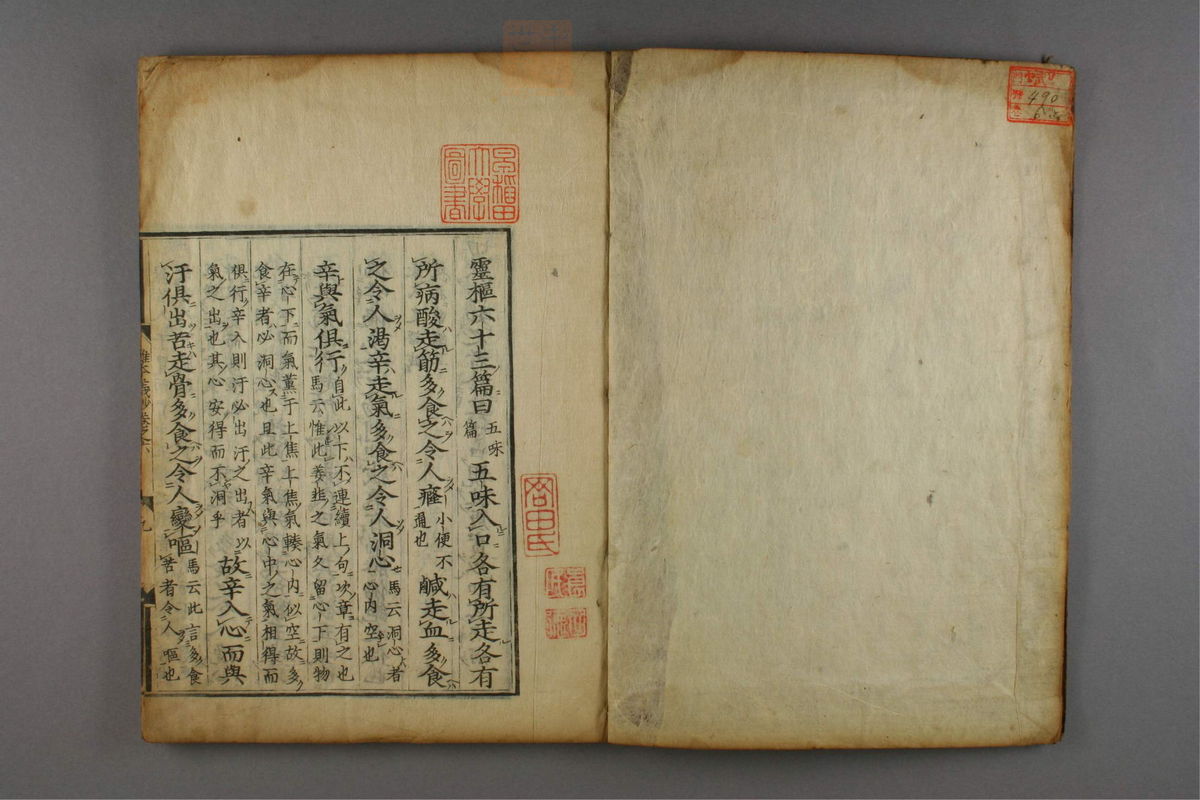 靈樞六十三篇曰五味篇五味入口各有所走各有
所病酸走筋多食之令人癃小便不通也鹹走血多食
之令人渴辛走氣多食之令人洞心馬云洞心者心内空也
辛與氣俱行自此以下不連續上句次章有之也馬云惟此姜韭之氣久留心下則物
在心下而氣薰于上焦上焦氣轃心内似空故多食辛者必洞心也且此辛氣與心中之氣相得而
俱行辛入則汗必出汗之出者以氣之出也其心安得而不洞乎故辛入心而與
汗俱出苦走骨多食之令人變嘔馬云此言多食苦者令人嘔也
早稲田大學圖書
490
九